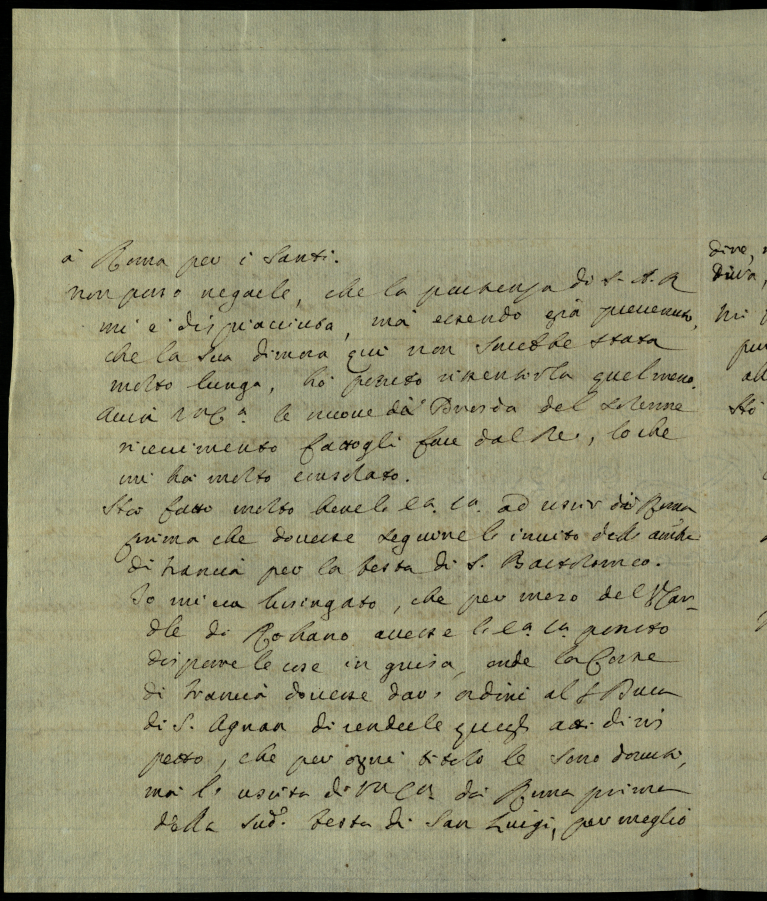 à Roma per i Santi.
non posso negarle, che la partenza di S. A. R
mi è dispiacciuta, mà essendo già prevenuto,
che la sua dimora quì non sarebbe stata
molto lunga, hò potuto risentirla quel meno.
Avrà le nuove dà del solenne
ricevimento fattogli fare dal Rè, lo che
mi hà molto consolato.
fatto molto bene ad uscir dà Roma
prima che dovesse seguirne l'invito dell'
di Francia per la festa di S. Bartolomeo.
Io mi era lusingato, che per mezo del Car-
dle di Rohano avesse potuto
disporre le cose in guisa, onde la Corte
di Francia dovesse dare ordini al Duca
di S. Agnan di renderle quegli atti di ris
petto, che per ogni titolo le sono dovuti,
mà l'uscita di dà Roma prima
della sud.ª festa di San Luigi, per meglio
dire,